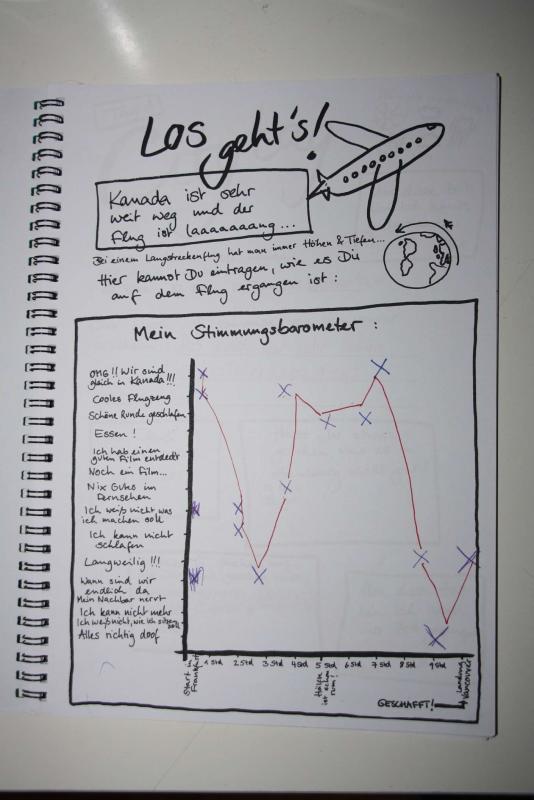 Los geht's!
Kanada ist sehr
weit weg und der
Flug ist laaaaaaang...
Bei einem Langstreckenflug hat man immer Höhen & Tiefen...
Hier kannst Du eintragen, wie es Dir
auf dem Flug ergangen ist:
Mein Stimmungsbarometer:
OMG!! Wir sind
gleich in Kanada!!!
Cooles Flugzeug
Schöne Runde geschlafen
Essen!
Ich hab einen
guten Film entdeckt
Noch ein Film...
Nix Gutes im
Fernsehen
Ich weiß nicht was
ich machen soll
Ich kann nicht
schlafen
Langweilig!!!
Wann sind wir
endlich da
Mein Nachbar nervt
Ich kann nicht mehr
Ich weiß nicht, wie ich sitzen soll
Alles richtig doof
Start in
Frankfurt
1 Std
2 Std
3 Std
4 Std
5 Std
6 Std
7 Std
8 Std
9 Std
Hälfte
ist schon
rum!
Landung
Vancouver
GESCHAFFT!